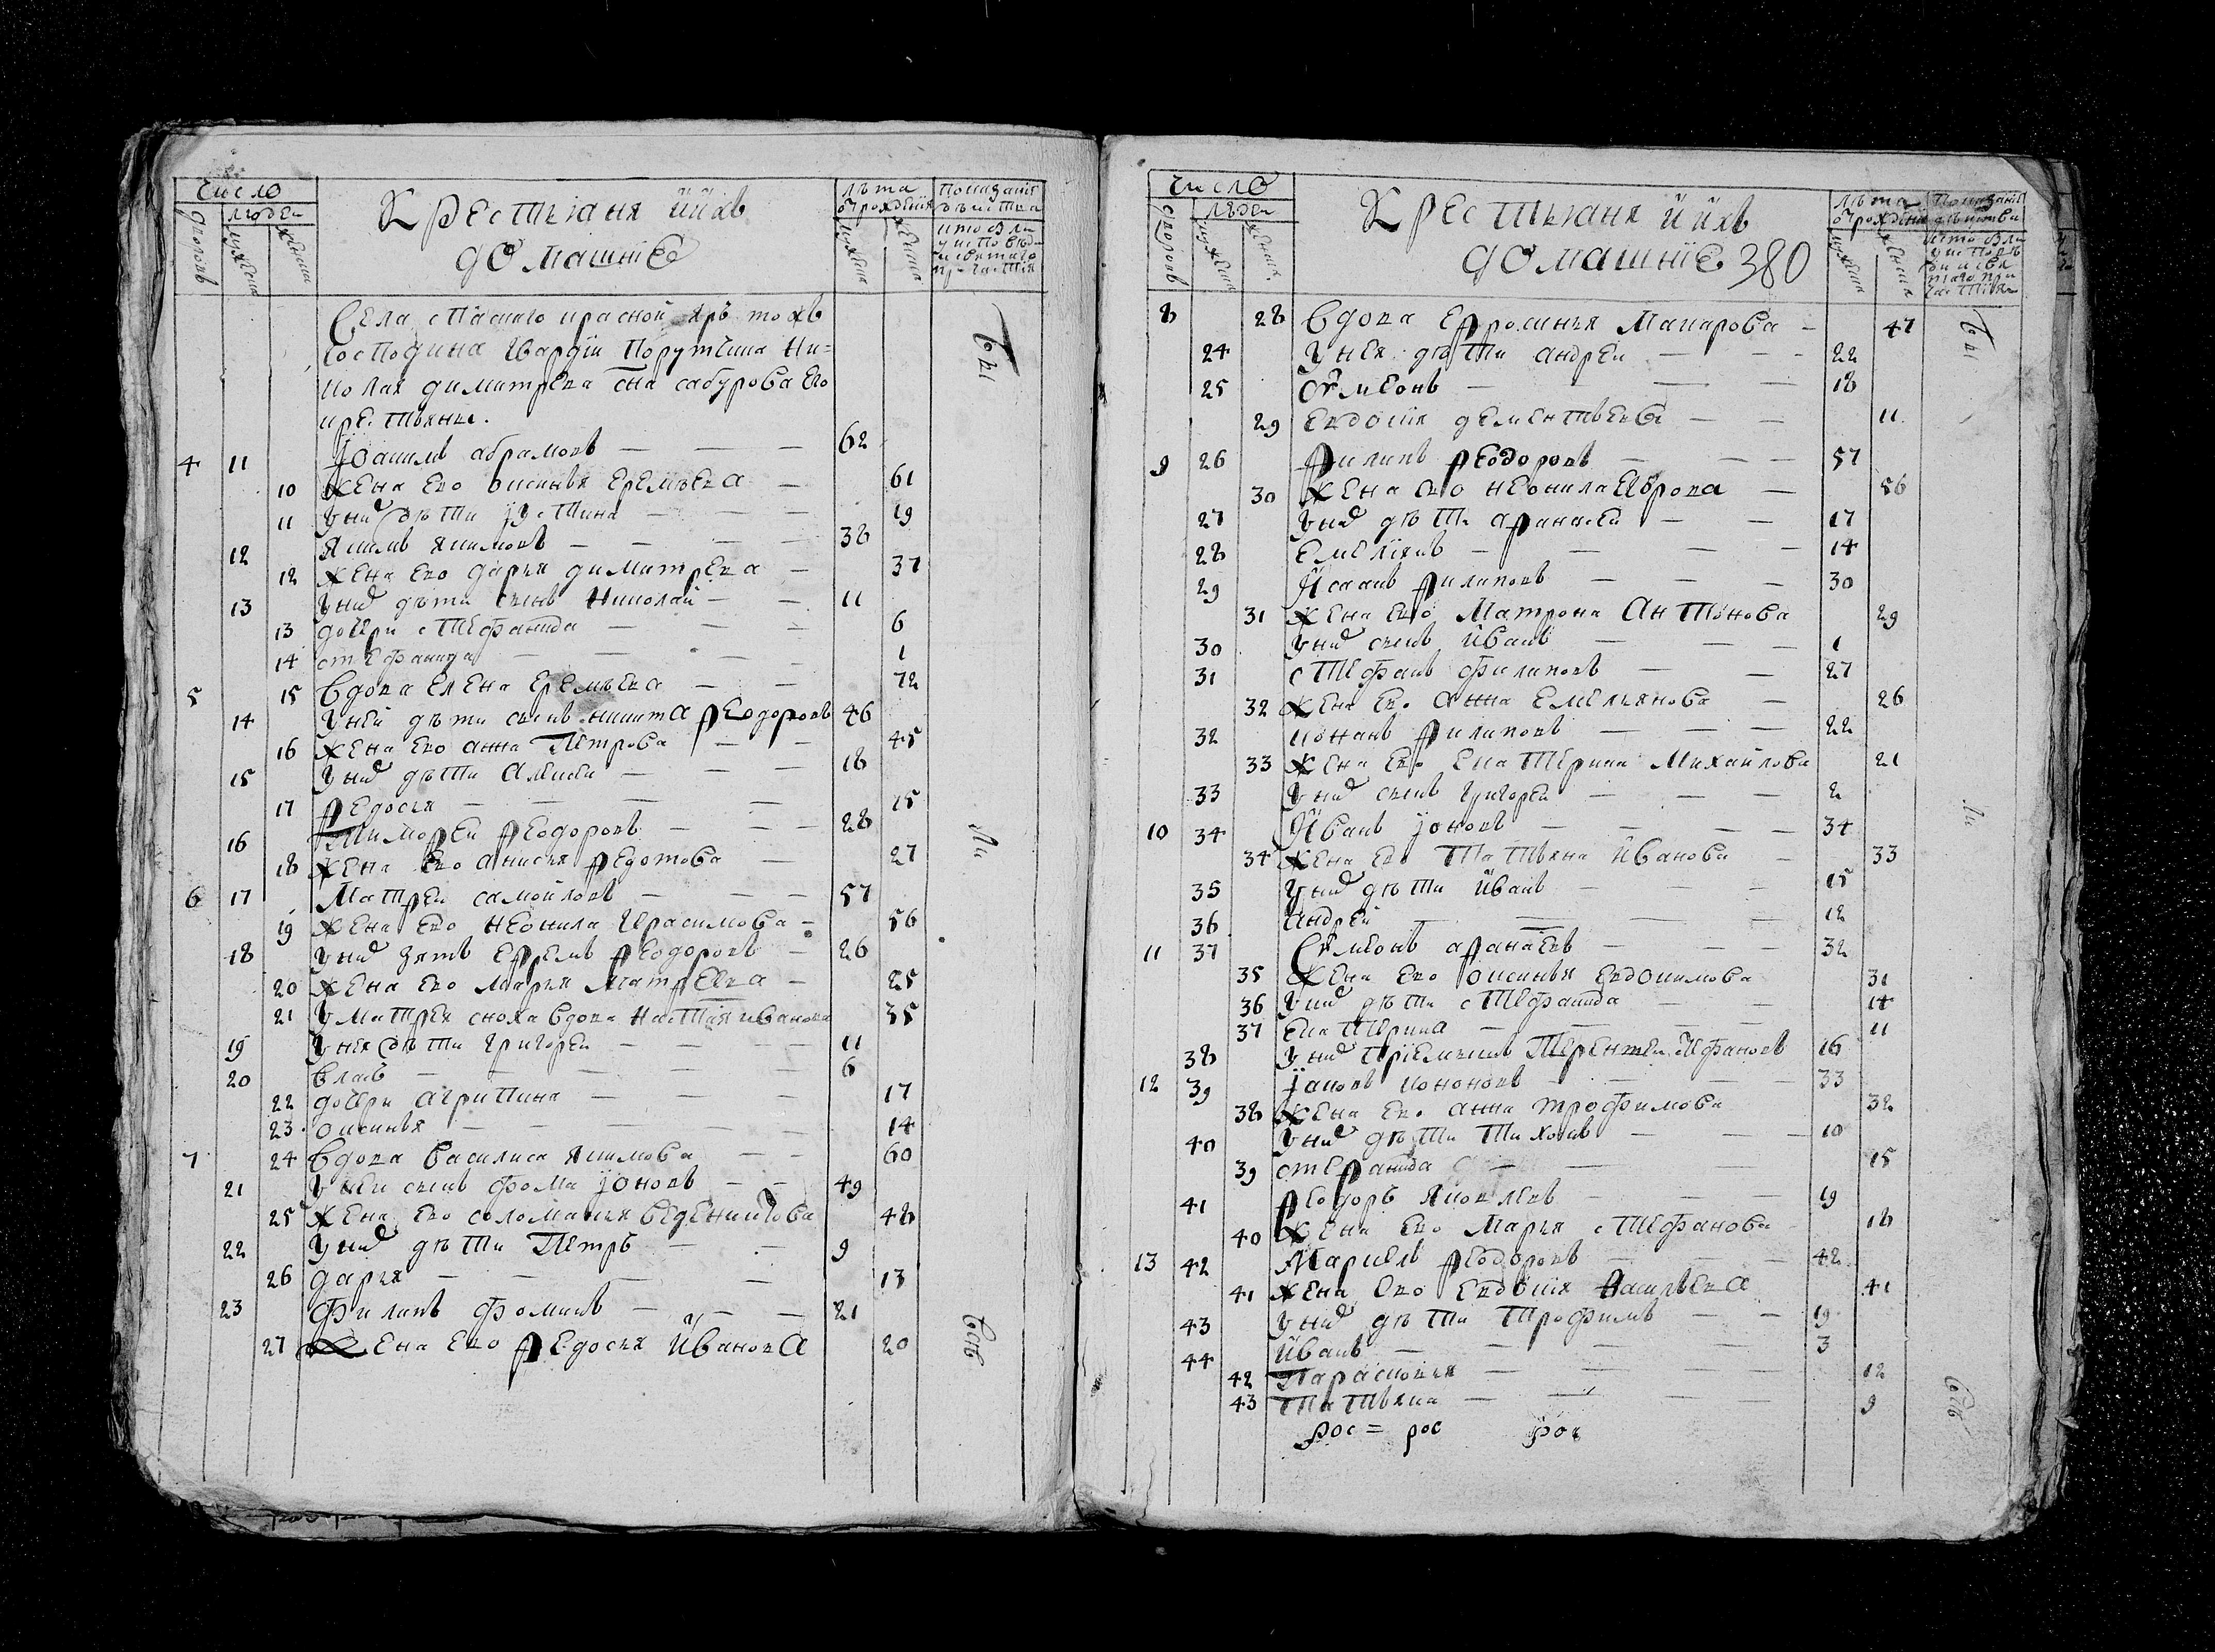 Число
людей
дворовъ
мужеска
женска
Крестьяня и ихъ
домашние
лѣта
от рождения
мужеска
женска
Показание
дѣйства
кто былъ
у исповѣди
и святаго
причастия
Села спаскаго красной яръ тожъ
господина гвардіи порутчика Ни-
колая димитрева сна сабурова ево
крестьяне.
4 11 Іоакимъ абрамовъ — — — 62
10 жена ево оксинья еремѣева — 61
11 у нихъ дѣти іустина — — — 19
12 Якимъ якимовъ — — — — 38
12 жена ево дарья димитрева — 37
13 у нихъ дѣти сынъ николай — — 11
13 дочери стефанида — — — 6
14 стефанида — — — — 1
5 15 вдова елена еремѣева — — 72
14 у ней дѣти сынъ никита феодоровъ 46
16 жена ево анна петрова — — 45
15 у нихъ дѣти алексѣй — — — 18
17 федосья — — — — 15
16 тимофей феодоровъ — — — 28
18 жена ево анисья федотова — 27
6 17 Матфей самойловъ — — — 57
19 жена ево неонила герасимова — 56
18 у нихъ зять ефремъ феодоровъ — 26
20 жена ево марья матфеева — 25
21 у матфея сноха вдова настасия иванова 35
19 у нея дѣти григорей — — — — 11
20 власъ — — — — — 6
22 дочери агрипина — — — 17
23 оксинья — — — — — 14
7 24 вдова василиса якимова — — 60
21 у ней сынъ фома іоновъ — — 49
25 жена ево соломанья веденихтова 48
22 у нихъ дѣти петръ — — 9
26 дарья — — — — 13
23 филипъ фоминъ — — — 21
27 жена ево федосья иванова 20
бы
ли
всѣ
число
людей
дворовъ
мужеска
женска
Крестьяня и ихъ
домашние 380
лѣта
от рождения
мужеска
женска
Показание
дѣйства
кто былъ
у исповѣ
ди и свя
таго при
частия
8 28 вдова ефросинья макарова — 47
24 у нея дѣти андрей — — — 22
25 сумеонъ — — — — 18
29 евдокия дементьева — — 11
9 26 филипъ феодоровъ — — — 57
30 жена ево неонила егорова — 56
27 у нихъ дѣти афанасей — — 17
28 емелиянъ — — — — 14
29 Исаакъ филиповъ — — — 30
31 жена ево матрона антонова 29
30 у нихъ сынъ иванъ — — — 1
31 стефанъ филиповъ — — 27
32 жена ево анна емельянова — 26
32 конанъ филиповъ — — — 22
33 жена ево екатерина михайлова 21
33 у нихъ сынъ григорей — — — 2
10 34 Иванъ іоновъ — — — — 34
34 жена ево татьяна иванова — 33
35 у нихъ дѣти иванъ — — — 15
36 андрей — — — — 12
11 37 сумеонъ афанасевъ — — — 32
35 жена ево оксинья евдокимова 31
36 у нихъ дѣти стефанида — — 14
37 екатерина — — — — 11
38 у нихъ приемышъ терентей стефановъ 16
12 39 іаковъ кононовъ — — — 33
38 жена ево анна трофимова 32
40 у нихъ дѣти тихонъ — — 10
39 стефанида — — 15
41 феодоръ яковлевъ — — — 19
40 жена ево марья стефанова 18
13 42 Маркелъ феодоровъ — — — 42
41 жена ево евдокия васильева 41
43 у нихъ дѣти трофимъ — — 19
44 иванъ — — — — 3
42 парасковья — — — 12
43 татьяна — — — 9
рос = рос рос
бы
ли
всѣ